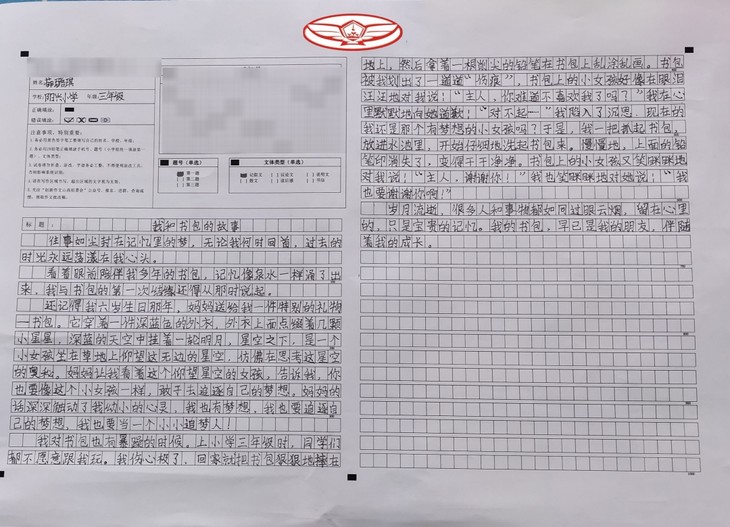 姓名:
学校: 阳兴小学 年级: 三年级
正确填涂:
错误填涂:
注意事项，特别重要:
题号（单选）
文体类型（单选）
第一题
第二题
第三题
记叙文
议论文
说明文
散文
读后感
标 题: 我和书包的故事
往事如尘封在记忆里的梦，无论我何时回首，过去的
时光永远荡漾在我心头。
看着眼前陪伴我多年的书包，记忆像泉水一样涌了出
来，我与书包的第一次结缘还得从那时说起。
还记得我六岁生日那年，妈妈送给我一件特别的礼物
—书包。它穿着一件深蓝色的外衣，外衣上面点缀着几颗
小星星，深蓝的天空中挂着一轮明月，星空之下，是一个
小女孩坐在草地上仰望这无边的星空，仿佛在思考这星空
的奥秘。妈妈让我看着这个仰望星空的女孩，告诉我，你
也要像这个小女孩一样，敢于去追逐自己的梦想。妈妈的
话深深触动了我幼小的心灵，我也有梦想，我也要追逐自
己的梦想，我也要当一个小小追梦人！
我对书包也有暴躁的时候。上小学三年级时，同学们
都不愿意跟我玩。我伤心极了，回家就把书包狠狠地摔在
地上，然后拿着一根削尖的铅笔在书包上乱涂乱画。书包
被我划出了一道道“伤痕”，书包上的小女孩好像在眼泪
汪汪地对我说：“主人，你难道不喜欢我了吗？”我在心
里默默地向她道歉：“对不起！”我陷入了沉思，现在的
我还是那个有梦想的小女孩吗？于是，我一把抓起书包，
放进水池里，开始仔细地洗起书包来，慢慢地，上面的铅
笔印消失了，变得干干净净。书包上的小女孩又笑眯眯地
对我说：“主人，谢谢你！”我也笑眯眯地对她说：“我
也要谢谢你啊！”
岁月流逝，很多人和事物都如同过眼云烟，留在心里
的，只是宝贵的记忆。我的书包，早已是我的朋友，伴随
着我的成长。